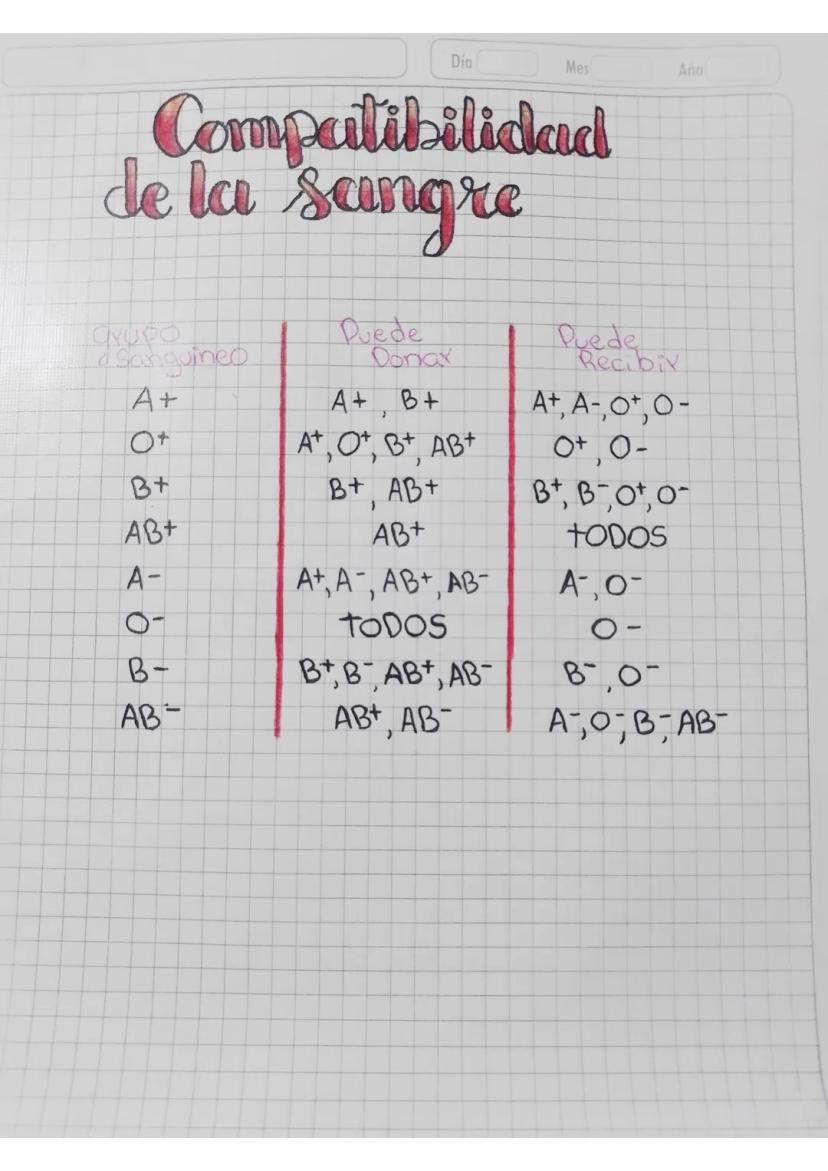 Día Mes Año
Compatibilidad
de la sangre
Grupo Sanguineo Puede Donar Puede Recibir
A+ A+, B+ A+, A-, O+, O-
O+ A+, O+, B+, AB+ O+, O-
B+ B+, AB+ B+, B-, O+, O-
AB+ AB+ TODOS
A- A+, A-, AB+, AB- A-, O-
O- TODOS O-
B- B+, B-, AB+, AB- B-, O-
AB- AB+, AB- A-, O-, B-, AB-